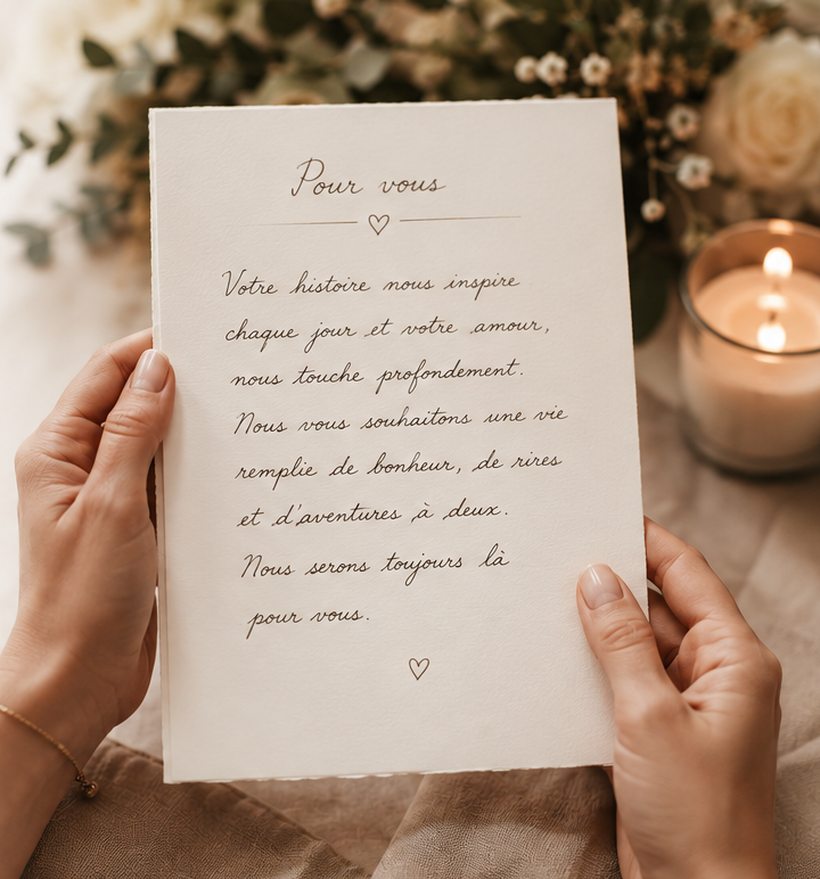 Pour vous
Votre histoire nous inspire
chaque jour et votre amour,
nous touche profondement.
Nous vous souhaitons une vie
remplie de bonheur, de rires
et d'aventures à deux.
Nous serons toujours là
pour vous.